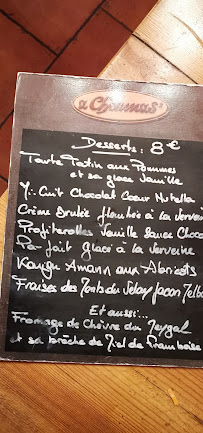 Desserts: 8 €
Tarte Tatin aux Pommes
et sa glace Vanille
Mi-Cuit Chocolat Coeur Nutella
Crème Brulée flambée à la Verveine
Profiteroles Vanille Sauce Choco
Parfait glacé à la Verveine
Kouign Amann aux Abricots
Fraises des Monts du Velay façon Melba
Et aussi:...
Fromage de Chèvre du Meygal
et sa brèche de Miel de Framboise